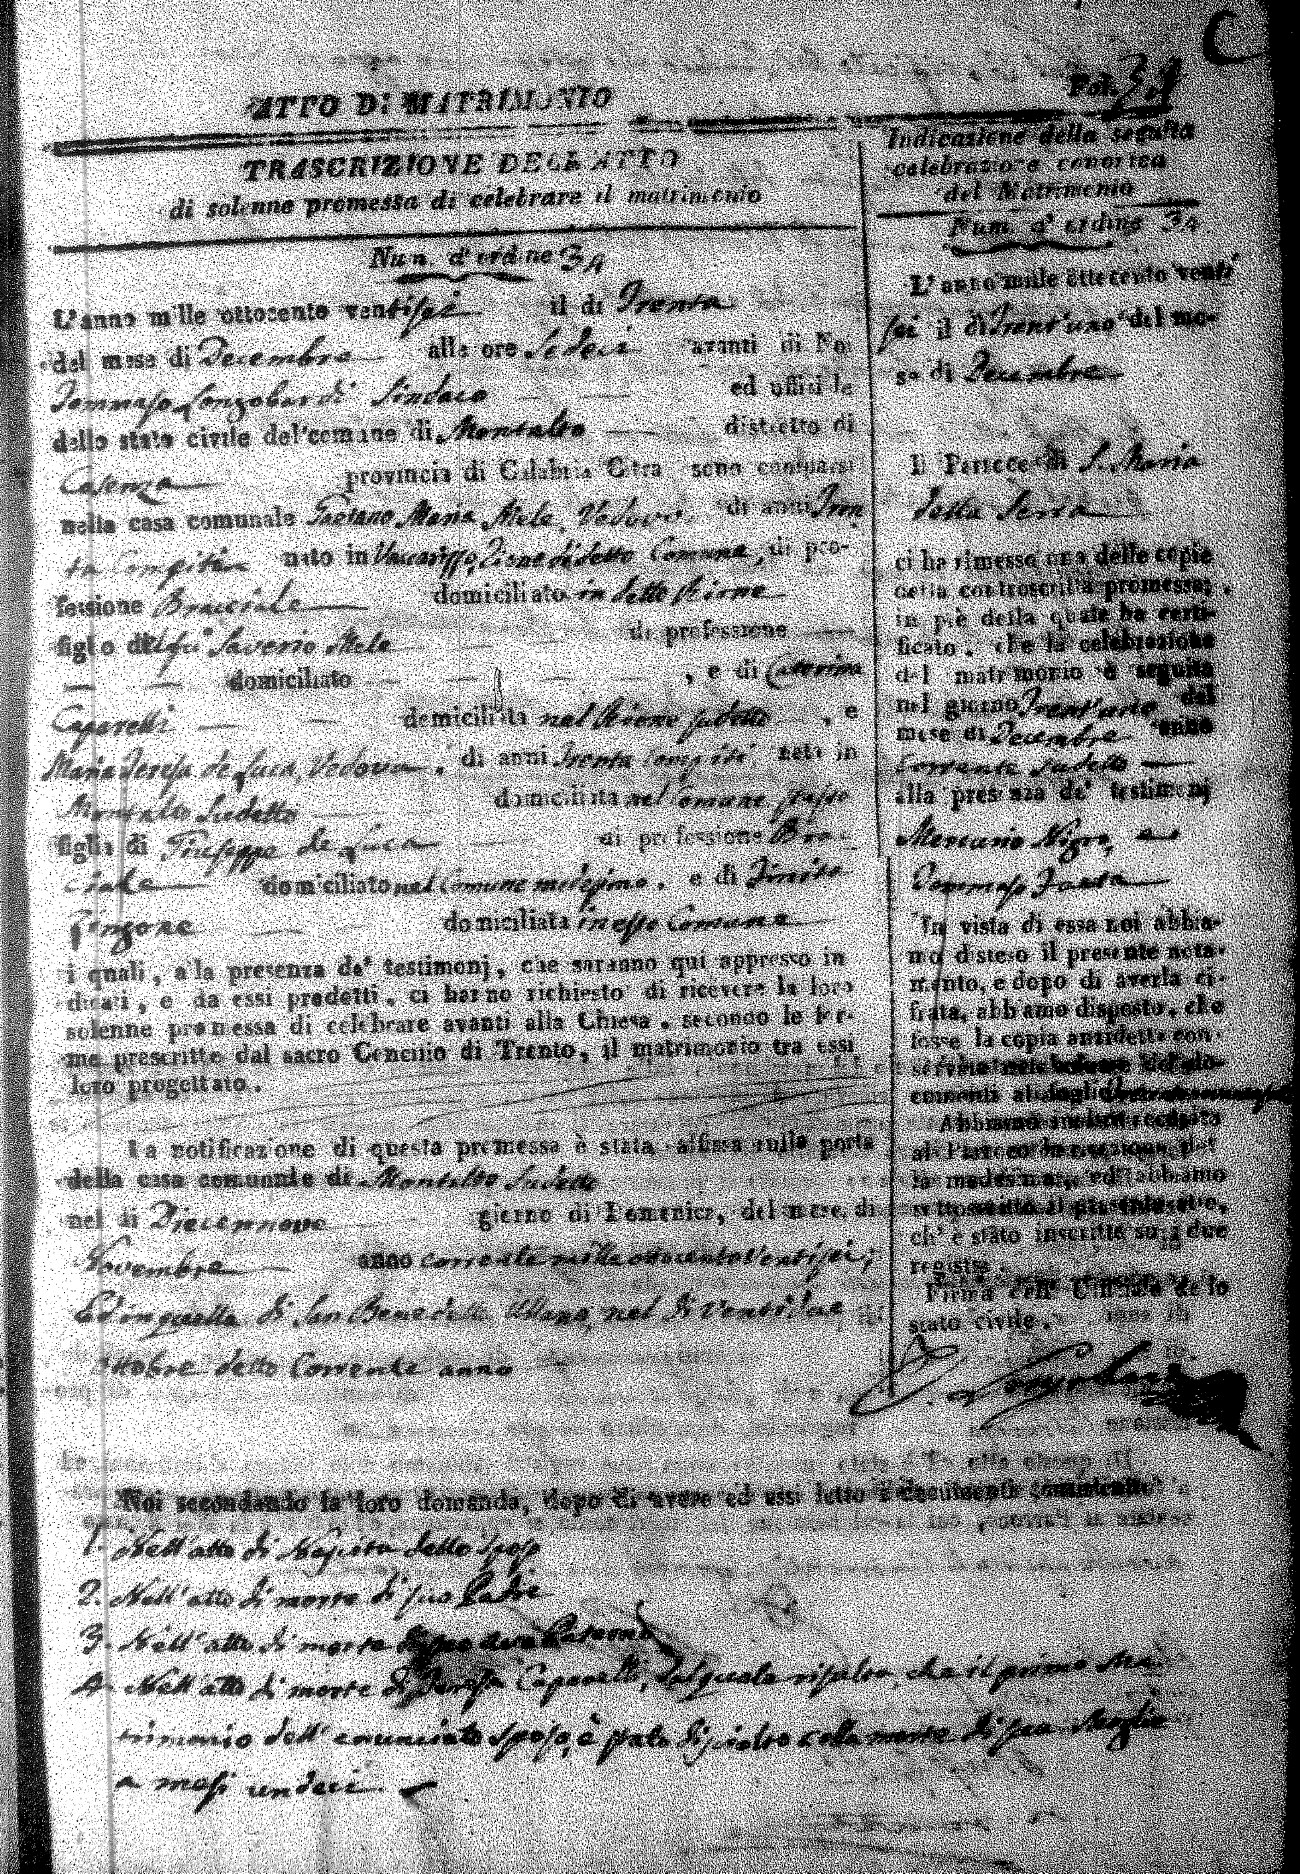 C
ATTO DI MATRIMONIO
Fol. 34
TRASCRIZIONE DELL'ATTO
di solenne promessa di celebrare il matrimonio
Num. d'ordine 34
L'anno mille ottocento ventisei il di Trenta
del mese di Decembre alle ore Sedeci avanti di Noi
Tommaso Longobardi Sindaco ed uffiziale
dello stato civile del comune di Montalto distretto di
Cosenza provincia di Calabria Citra sono comparsi
nella casa comunale Gaetano Maria Mele Vedovo di anni Tren
ta Compiti nato in Vaccarizzo di detto Comune, di pro-
fessione Bracciale domiciliato in detto
figlio del qui Saverio Mele di professione
domiciliato , e di Caterina
Caparelli domiciliata nel sudetto , e
Maria Teresa de Luca Vedova , di anni Trenta compiti nata in
Montalto Sudetto domiciliata nel Comune stesso
figlia di Giuseppe de Luca di professione Brac-
ciale domiciliato nel Comune medesimo , e di
domiciliata in esso Comune
i quali, alla presenza de' testimonj, che saranno qui appresso in
dicati, e da essi prodotti, ci hanno richiesto di ricevere la loro
solenne promessa di celebrare avanti alla Chiesa, secondo le for-
me prescritte dal sacro Concilio di Trento, il matrimonio tra essi
loro progettato.
La notificazione di questa promessa è stata affissa sulla porta
della casa comunale di Montalto Sudetto
nel di Diecennove giorno di Domenica, del mese di
Novembre anno corrente mille ottocento ventisei,
Ed in quella di San Benedetto Ullano nel di Ventidue
ottobre detto Corrente anno
Indicazione della seguita
celebrazione canonica
del Matrimonio
Num. d'ordine 34
L'anno mille ottocento venti
sei il di Trent'uno del me-
se di Decembre
Il Parroco di S. Maria
della Serra
ci ha rimesso una delle copie
della controscritta promessa;
in piè della quale ha certi-
ficato, che la celebrazione
del matrimonio è seguita
nel giorno Trent'uno del
mese di Decembre anno
Corrente sudetto
alla presenza de' testimonj
Mercurio Nigro, e
Tommaso
In vista di essa noi abbia-
mo disteso il presente nota-
mento, e dopo di averla ci-
frata, abbiamo disposto, che
fosse la copia anzidetta con-
servata nel volume de' do-
cumenti al foglio
Abbiamo inoltre accusato
al Parroco la ricezione del
la medesima, ed abbiamo
sottoscritto il presente atto,
ch'è stato inscritto su i due
registri.
Firma dell' Uffiziale dello
stato civile.
T. Longobardi
Noi secondando la loro domanda, dopo di avere ad essi letto i documenti consistenti
1. Nell'atto di Nascita dello sposo
2. Nell'atto di morte di suo Padre
3. Nell'atto di morte di suo Avo Paterno
4. Nell'atto di morte di Teresa Caparelli, dal quale risulta che il primo Ma-
trimonio dell' enunciato sposo, è stato disciolto colla morte di sua Moglie
a mesi undeci